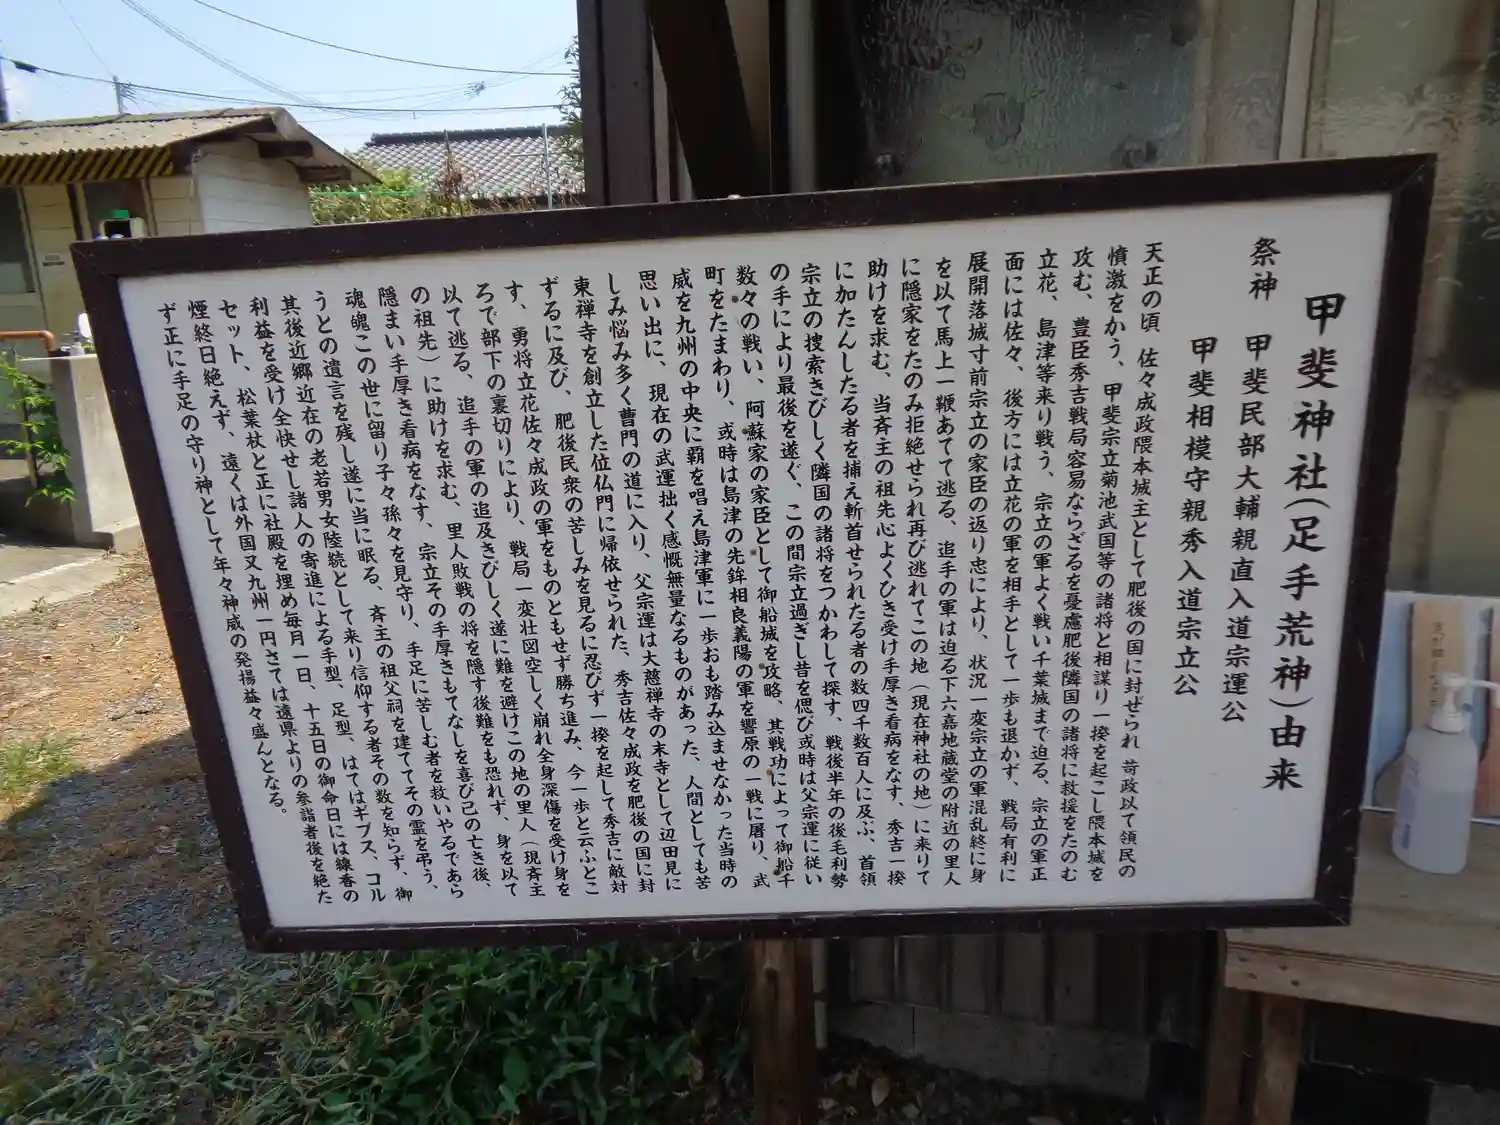 甲斐神社(足手荒神)由来
祭神　甲斐民部大輔親直入道宗運公
甲斐相模守親秀入道宗立公
天正の頃　佐々成政隈本城主として肥後の国に封ぜられ　苛政以て領民の
憤激をかう、甲斐宗立菊池武国等の諸将と相謀り一揆を起こし隈本城を
攻む、豊臣秀吉戦局容易ならざるを憂慮肥後隣国の諸将に救援をたのむ
立花、島津等来り戦う、宗立の軍よく戦い千葉城まで迫る、宗立の軍正
面には佐々、後方には立花の軍を相手として一歩も退かず、戦局有利に
展開落城寸前宗立の家臣の返り忠により、状況一変宗立の軍混乱終に身
を以て馬上一鞭あてて逃る、追手の軍は迫る下六嘉地蔵堂の附近の里人
に隠家をたのみ拒絶せられ再び逃れてこの地（現在神社の地）に来りて
助けを求む、当斉主の祖先心よくひき受け手厚き看病をなす、秀吉一揆
に加たんしたる者を捕え斬首せられたる者の数四千数百人に及ぶ、首領
宗立の捜索きびしく隣国の諸将をつかわして探す、戦後半年の後毛利勢
の手により最後を遂ぐ、この間宗立過ぎし昔を偲び或時は父宗運に従い
数々の戦い、阿蘇家の家臣として御船城を攻略、其戦功によって御船千
町をたまわり、或時は島津の先鉾相良義陽の軍を響原の一戦に屠り、武
威を九州の中央に覇を唱え島津軍に一歩おも踏み込ませなかった当時の
思い出に、現在の武運拙く感慨無量なるものがあった、人間としても苦
しみ悩み多く曹門の道に入り、父宗運は大慈禅寺の末寺として辺田見に
東禅寺を創立した位仏門に帰依せられた、秀吉佐々成政を肥後の国に封
ずるに及び、肥後民衆の苦しみを見るに忍びず一揆を起して秀吉に敵対
す、勇将立花佐々成政の軍をものともせず勝ち進み、今一歩と云ふとこ
ろで部下の裏切りにより、戦局一変壮図空しく崩れ全身深傷を受け身を
以て逃る、追手の軍の追及きびしく遂に難を避けこの地の里人（現斉主
の祖先）に助けを求む、里人敗戦の将を隠す後難をも恐れず、身を以て
隠まい手厚き看病をなす、宗立その手厚きもてなしを喜び己の亡き後、
魂魄この世に留り子々孫々を見守り、手足に苦しむ者を救いやるであら
うとの遺言を残し遂に当に眠る、斉主の祖父祠を建ててその霊を弔う、
其後近郷近在の老若男女陸続として来り信仰する者その数を知らず、御
利益を受け全快せし諸人の寄進による手型、足型、はてはギブス、コル
セット、松葉杖と正に社殿を埋め毎月一日、十五日の御命日には線香の
煙終日絶えず、遠くは外国又九州一円さては遠県よりの参詣者後を絶た
ず正に手足の守り神として年々神威の発揚益々盛んとなる。